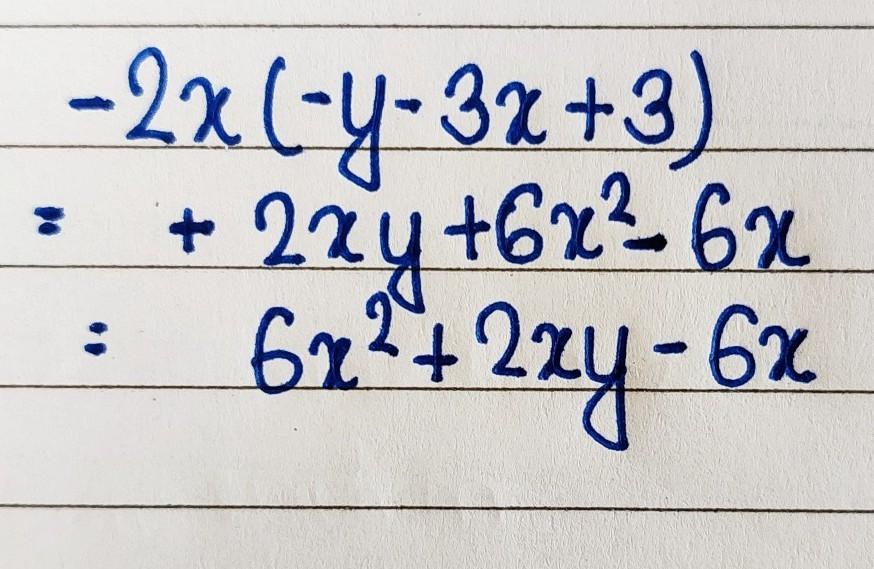 -2x(-y-3x+3)
= +2xy+6x²-6x
= 6x²+2xy-6x